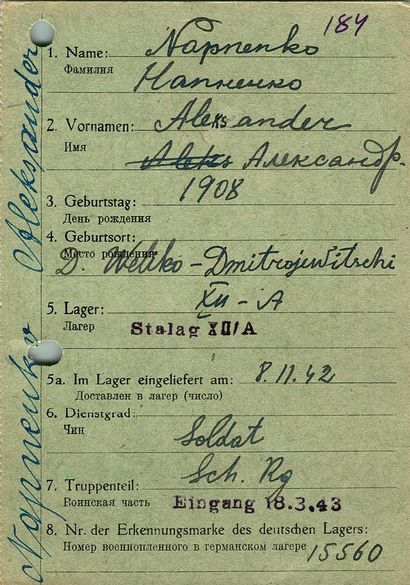 184
1. Name: Napnenko
Фамилия Напненко
2. Vornamen: Aleksander
Имя Aleks Александр.
3. Geburtstag: 1908
День рождения
4. Geburtsort:
Место рождения
D. Weliko-Dmitrojewitschi
5. Lager: XII-A
Лагер Stalag XII/A
5a. Im Lager eingeliefert am: 8.11.42
Доставлен в лагер (число)
6. Dienstgrad:
Чин Soldat
Sch. Rg
7. Truppenteil:
Воинская часть Eingang 18.3.43
8. Nr. der Erkennungsmarke des deutschen Lagers:
Номер военнопленного в германском лагере 15560
Napnenko Aleksander